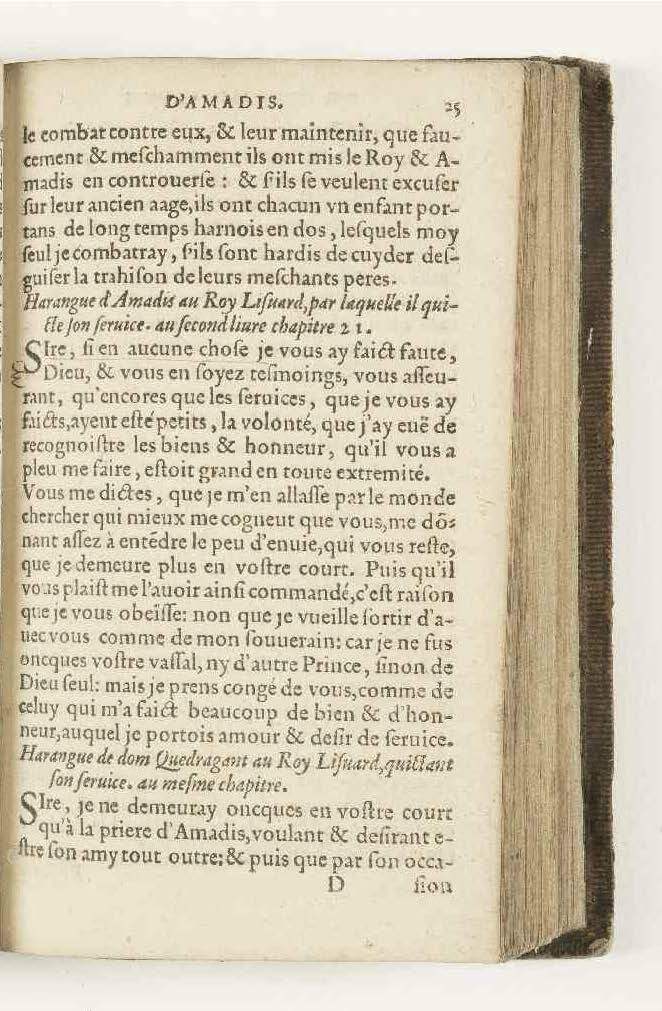 D'AMADIS. 25
le combat contre eux, & leur maintenir, que fau-
cement & meſchamment ils ont mis le Roy & A-
madis en controuerſe : & ſ'ils ſe veulent excuſer
ſur leur ancien aage, ils ont chacun vn enfant por-
tans de long temps harnois en dos, leſquels moy
ſeul je combatray, ſ'ils ſont hardis de cuyder deſ-
guiſer la trahiſon de leurs meſchants peres.
Harangue d'Amadis au Roy Liſuard, par laquelle il qui-
cte ſon ſeruice. au ſecond liure chapitre 21.
SIre, ſi en aucune choſe je vous ay faict faute,
Dieu, & vous en ſoyez teſmoings, vous aſſeu-
rant, qu'encores que les ſeruices, que je vous ay
faicts, ayent eſté petits, la volonté, que j'ay euë de
recognoiſtre les biens & honneur, qu'il vous a
pleu me faire, eſtoit grand en toute extremité.
Vous me dictes, que je m'en allaſſe par le monde
chercher qui mieux me cogneut que vous, me dõ-
nant aſſez à entẽdre le peu d'enuie, qui vous reſte,
que je demeure plus en voſtre court. Puis qu'il
vous plaiſt me l'auoir ainſi commandé, c'eſt raiſon
que je vous obeïſſe: non que je vueille ſortir d'a-
uec vous comme de mon ſouuerain: car je ne fus
oncques voſtre vaſſal, ny d'autre Prince, ſinon de
Dieu ſeul: mais je prens congé de vous, comme de
celuy qui m'a faict beaucoup de bien & d'hon-
neur, auquel je portois amour & deſir de ſeruice.
Harangue de dom Quedragant au Roy Liſuard, quictant
ſon ſeruice. au meſme chapitre.
SIre, je ne demeuray oncques en voſtre court
qu'à la priere d'Amadis, voulant & deſirant e-
ſtre ſon amy tout outre: & puis que par ſon occa-
D ſion